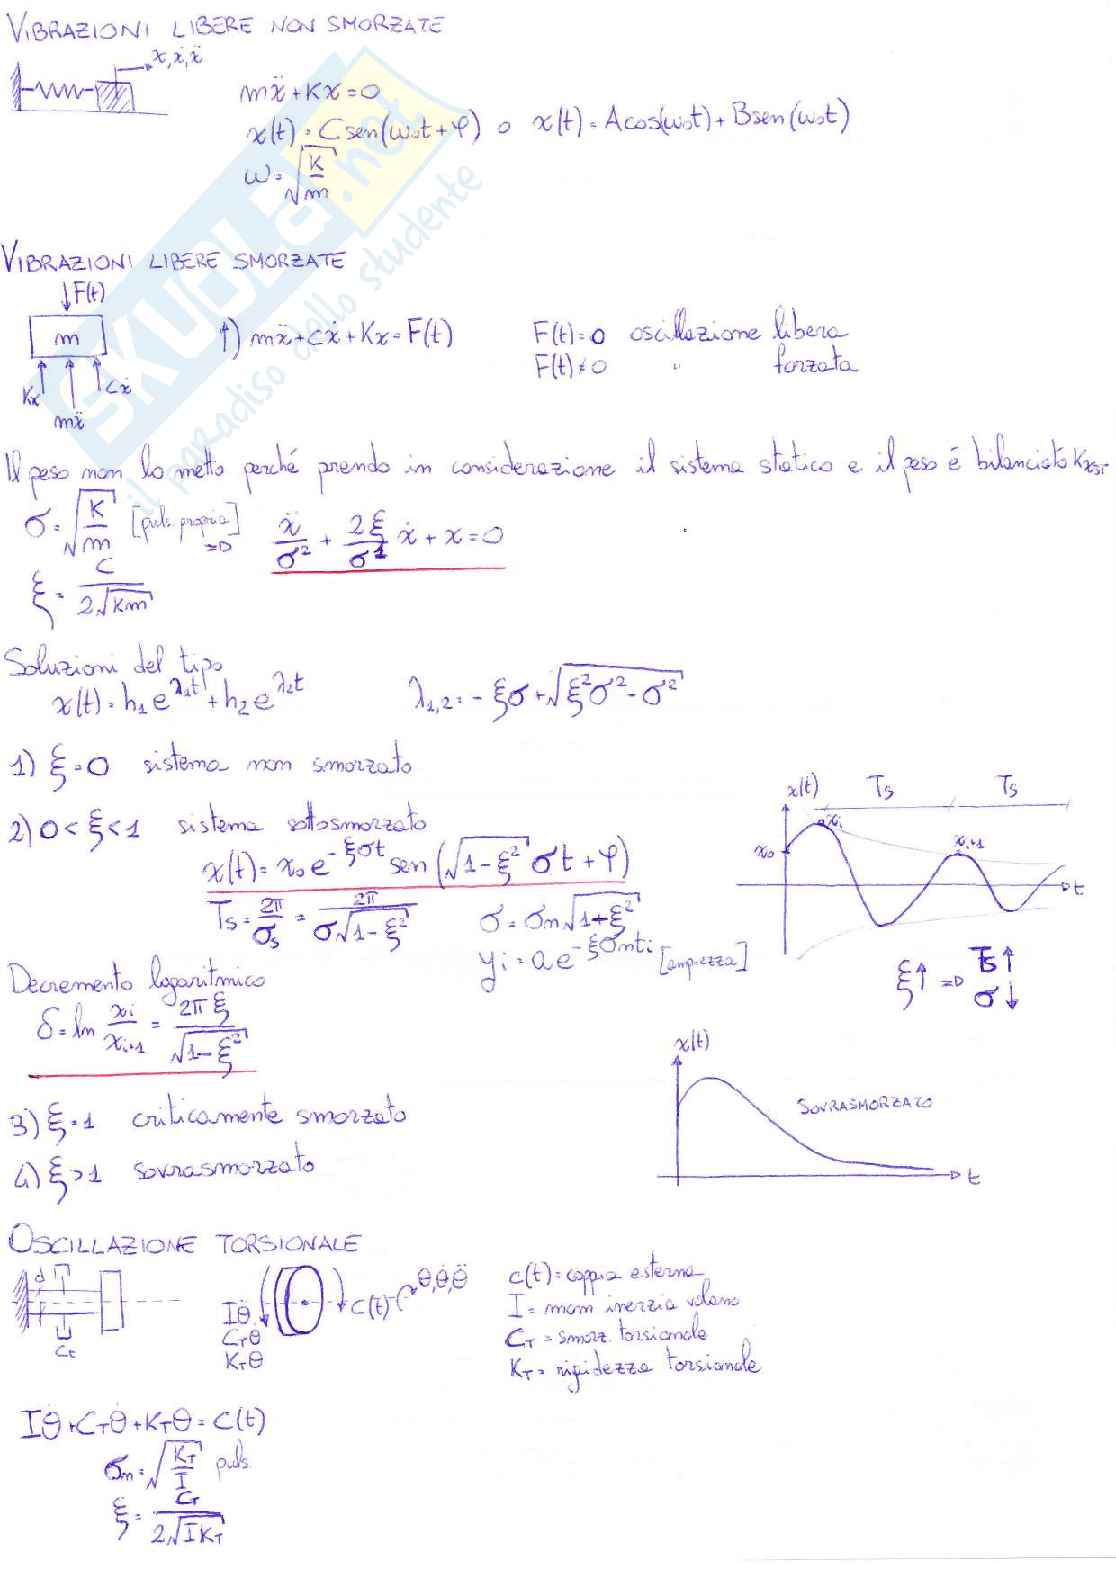 VIBRAZIONI LIBERE NON SMORZATE
x, ẋ, ẍ
mẍ + Kx = 0
x(t) = C sen(ω₀t + φ) o x(t) = A cos(ω₀t) + B sen(ω₀t)
ω = √(K/m)
SKUOLA.net
il paradiso dello studente
VIBRAZIONI LIBERE SMORZATE
F(t)
m
Kx
mẍ
cẋ
↑) mẍ + cẋ + Kx = F(t)
F(t) = 0 oscillazione libera
F(t) ≠ 0 " forzata
Il peso non lo metto perché prendo in considerazione il sistema statico e il peso é bilanciato K xST
σ = √(K/m) [puls. propria] =D
ẍ/σ² + 2ξ/σ¹ ẋ + x = 0
ξ = C/(2√(Km))
Soluzioni del tipo
x(t) = h₁e^(λ₁t) + h₂e^(λ₂t)
λ₁,₂ = -ξσ + √(ξ²σ² - σ²)
1) ξ = 0 sistema non smorzato
2) 0 < ξ < 1 sistema sottosmorzato
x(t) = x₀ e^(-ξσt) sen(√(1-ξ²) σt + φ)
Ts = 2π/σs = 2π/(σ√(1-ξ²))
σ = σn√(1+ξ²)
yi = a e^(-ξσnti) [ampiezza]
x(t)
Ts
Ts
xi
xi+1
x₀
t
ξ↑ =D Ts↑
σ↓
Decremento logaritmico
δ = ln xi/xi+1 = 2πξ/√(1-ξ²)
3) ξ = 1 criticamente smorzato
4) ξ > 1 sovrasmorzato
x(t)
SOVRASMORZATO
t
OSCILLAZIONE TORSIONALE
d
Ct
Iθ̈
CTθ̇
KTθ
C(t)
θ, θ̇, θ̈
C(t) = coppia esterna
I = mom inerzia volano
CT = smorz. torsionale
KT = rigidezza torsionale
Iθ̈ + CTθ̇ + KTθ = C(t)
σn = √(KT/I) puls.
ξ = CT/(2√(IKT))